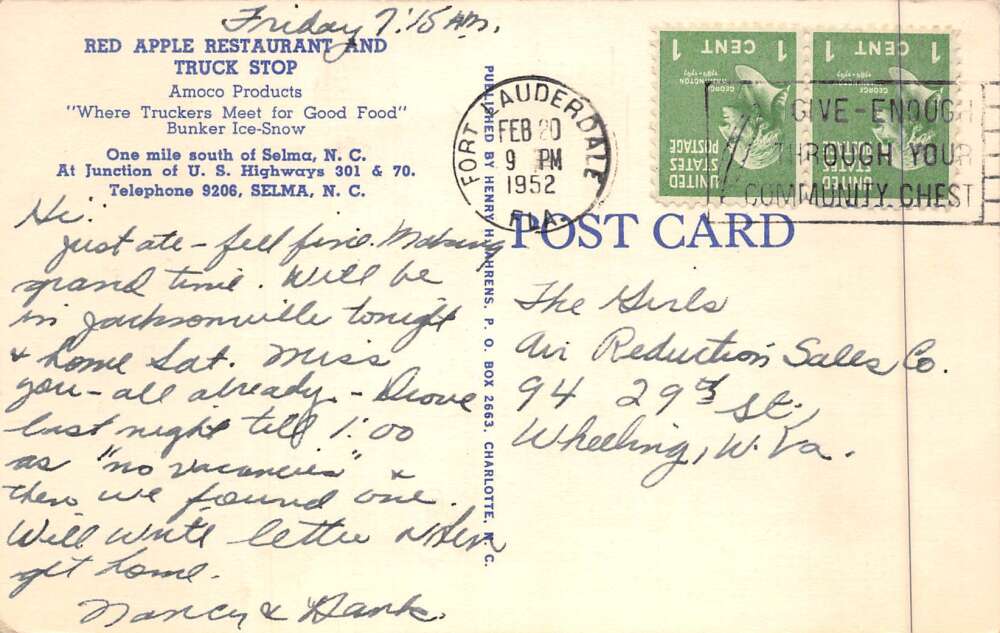 Friday 7:15 AM.
RED APPLE RESTAURANT AND
TRUCK STOP
Amoco Products
"Where Truckers Meet for Good Food"
Bunker Ice-Snow
One mile south of Selma, N. C.
At Junction of U. S. Highways 301 & 70.
Telephone 9206, SELMA, N. C.
Hi:
just ate - feel fine. Making
grand time. Will be
in Jacksonville tonight
& home Sat. Miss
you-all already. - Drove
last night till 1:00
as "no vacancies" &
then we found one.
Will write letter when
get home.
Nancy & Hank.
PUBLISHED BY HENRY H. AHRENS, P. O. BOX 2663, CHARLOTTE, N. C.
FORT LAUDERDALE
FEB 20
9 PM
1952
FLA.
1 CENT 1
GEORGE
WASHINGTON
1789-1797
UNITED
STATES
POSTAGE
1 CENT 1
GEORGE
WASHINGTON
1789-1797
UNITED
STATES
POSTAGE
GIVE-ENOUGH
THROUGH YOUR
COMMUNITY CHEST
POST CARD
The Girls
Air Reduction Sales Co.
94 29th St.,
Wheeling, W. Va.